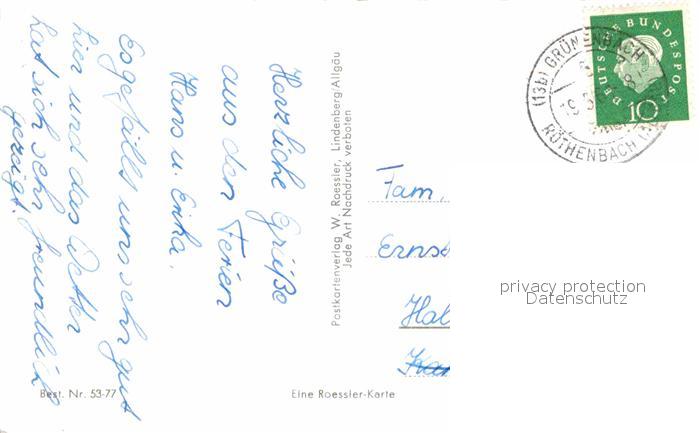 Herzliche Grüße
aus den Ferien
Hans u. Erika.
Es gefällt uns sehr gut
hier und das Wetter
hat sich sehr freundlich
gezeigt.
Best. Nr. 53-77
Eine Roessler-Karte
Postkartenverlag W. Roessler, Lindenberg/Allgäu
Jede Art Nachdruck verboten
Fam.
Erns
Hal
DEUTSCHE BUNDESPOST
10
(13b) GRÜNENBACH
RÖTHENBACH
privacy protection
Datenschutz